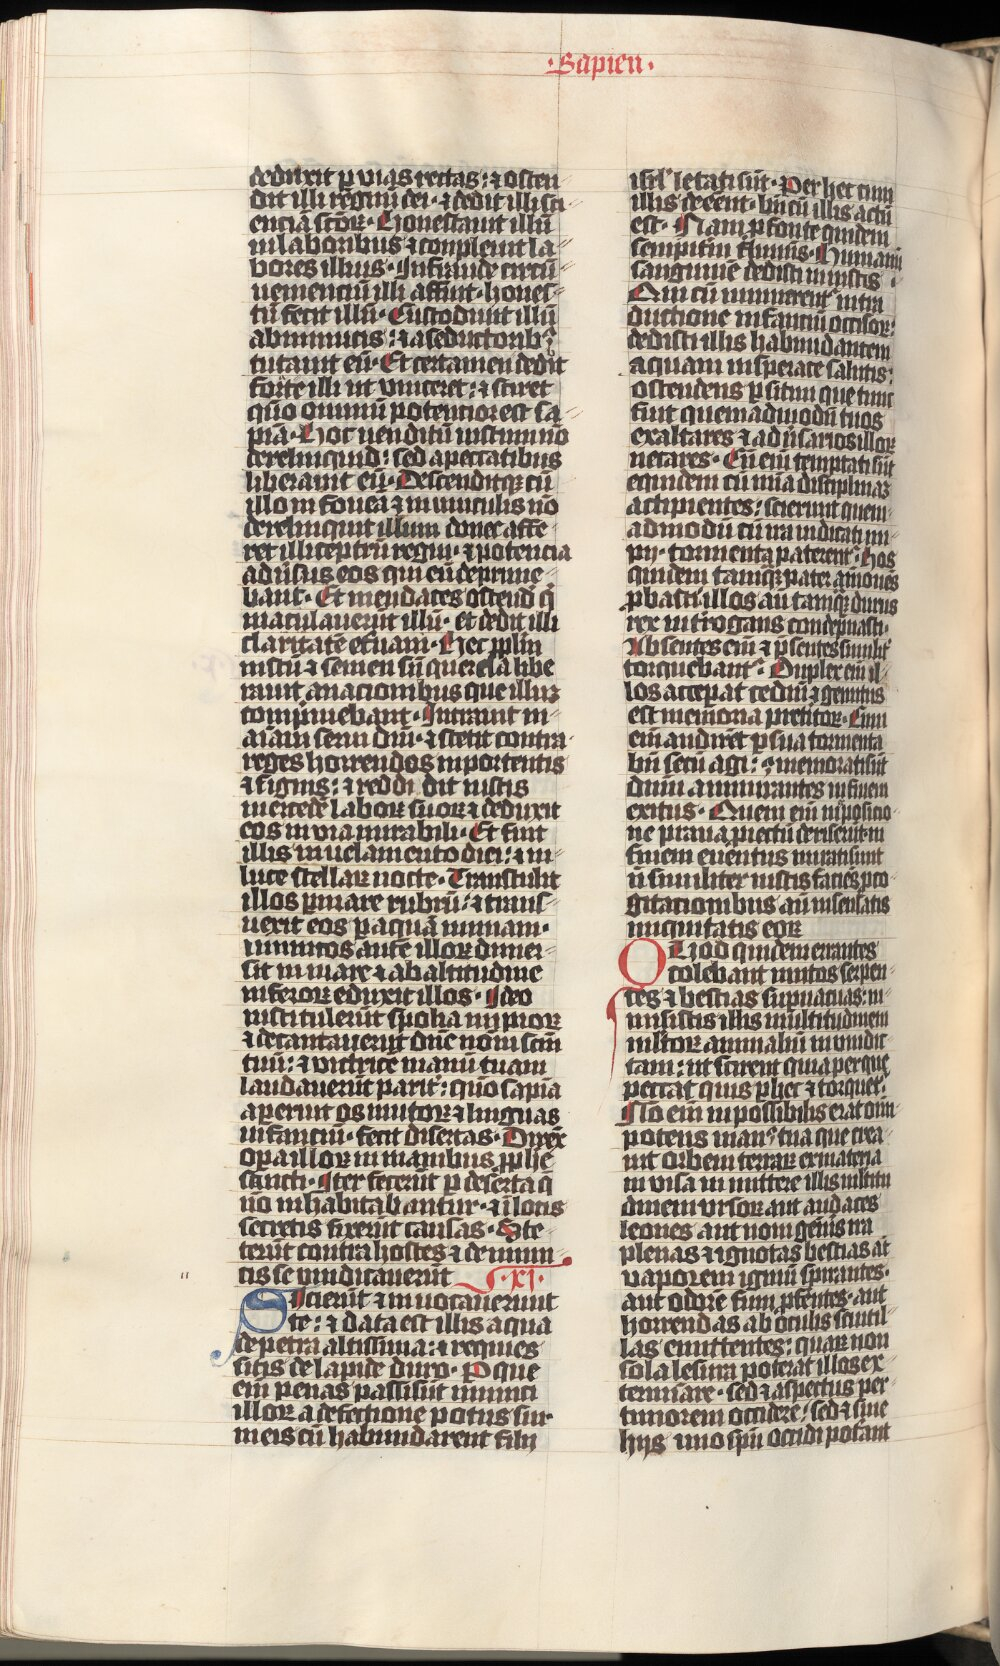 ·Sapien·
deduxit p̱ vias rectas: ⁊ osten
dit illi regnū dei· ⁊ dedit illi sci
enciā sc̄oꝝ· Honestauit illū
in laboribus ⁊ compleuit la
bores illius· In fraude circū
uenienciū illi affuit· hones
tū fecit illū· Custodiuit illū
ab inimicis: ⁊ a seductorib3
tutauit eū· Et certamen dedit
forte illi ut vinceret: ⁊ sciret
qūo omniū potencior est sa
pīa· Hoc uenditū iustum nō
dereliquid: sed a peccatibus
liberauit eū· Descenditqꝫ cū
illo in foueā ⁊ in uinculis nō
dereliquit illum donec affe
ret illi ceptrū regni· ⁊ potencia
adūsus eos qui eū deprime
bant· Et mendaces ostend q̄
maculauerūt illū· et dedit illi
claritatē et̄nam· Hec pp̄lm
iustū ⁊ semen sn̄ querela libe
rauit a nacionibus que illuꝫ
comp̄mebant· Intrauit in
aīam serui dn̄i· ⁊ stetit contra
reges horrendos in portentis
⁊ signis: ⁊ reddi dit iustis
mercedē laboꝝ suoꝝ ⁊ deduxit
eos in via mirabili· Et fuit
illis in uelamento diei: ⁊ in
luce stellaꝝ nocte· Transtulit
illos p̱ mare rubrū: ⁊ trans
uexit eos p̱ aquā nimiam·
inimicos aut̄ illoꝝ dimer
sit in mare ⁊ ab altitudine
inferoꝝ eduxit illos· Ideo
iusti tulerūt spolia impioꝝ
⁊ decantauerūt dn̄e nom̄ scm̄
tuū: ⁊ victricē manū tuam
laudauerūt parit̄: qūo sapīa
aperuit os mutoꝝ ⁊ linguas
infanciū· fecit disertas· Direx̄
oꝑa illoꝝ in manibus pp̄he
sancti· Iter fecerūt p̱ deserta q̄
nō inhabitabantur· ⁊ ī locis
secretis fixerūt causas· Ste
terūt contra hostes ⁊ de inim
cis se vindicauerūt ·XI·
Scierūt ⁊ inuocauerunt
te: ⁊ data est illis aqua
de petra altissima: ⁊ requies
sitis de lapide duro· P̱ que
em̄ penas passi sūt inimici
illoꝝ a defectione potus sui·
in eis cū habundarent filij
isrl̄ letati sūt· Per hec cum
illis deeent· bn̄ cū illis actū
est· Nam p̱ fonte quidem
sempitn̄i flumīs· Humanū
sanguinē dedisti iniustis·
Qui cū minuerent᷑ in tra
ductione infantiū occisoꝝ:
dedisti illis habundantem
aquam insperate salutis:
ostendens p̱ sitim que tunc
fuit quemadmodū tuos
exaltares ⁊ adūsarios illoꝝ
necares· Cū em̄ temptati sūt
equidem cū mīa disciplinaꝫ
accipientes: scierunt quem
admodū cū ira iudicati im
pij· tormenta paterent᷑· Hos
quidem tamqꝫ pater āmonēs
ꝓbasti illos aū tamqꝫ durus
rex introgans condēpnasti·
Absentes em̄ ⁊ p̄sentes simil᷑
torquebant᷑· Duplex em̄ il
los acceꝑat tediū ⁊ gemitus
est memoria pretitoꝝ· Cum
em̄ audiret p̱ sua tormenta
bn̄ secū agi: ꝯmemorati sūt
dn̄m ammirantes in finem
exitus· Quem em̄ in posicio
ne praua piectū deriserūt· in
finem euentus mirati sunt
nō similiter iustis faciēs pro
gitacionibus aū insensatis
iniquitatis eoꝝ
Quod quidem errantes
colebant mutos serpen
tes ⁊ bestias supuacuas: in
misistis illis multitudinem
mltoꝝ animaliū in vindic
tam: ut scirent quia per que
peccat quis p̱ hec ⁊ torquet᷑·
Nō em̄ inpossibilis erat om̄
potens man᷒ tua que crea
uit orbem terraꝝ ex materia
in visa in mittere illis multitu
dinem vrsoꝝ aut audaces
leones aut noui gen̄is ira
plenas ⁊ ignotas bestias aut
vaporem igniū spirantes·
aut odorē fumi ꝓferētes· aut
horrendas ab oculis scintil
las emittentes: quaꝝ non
sola lesura poterat illos ex
terminare· sed ⁊ aspectus per
timorem occidere: sed ⁊ sine
hijs uno spū occidi poterant